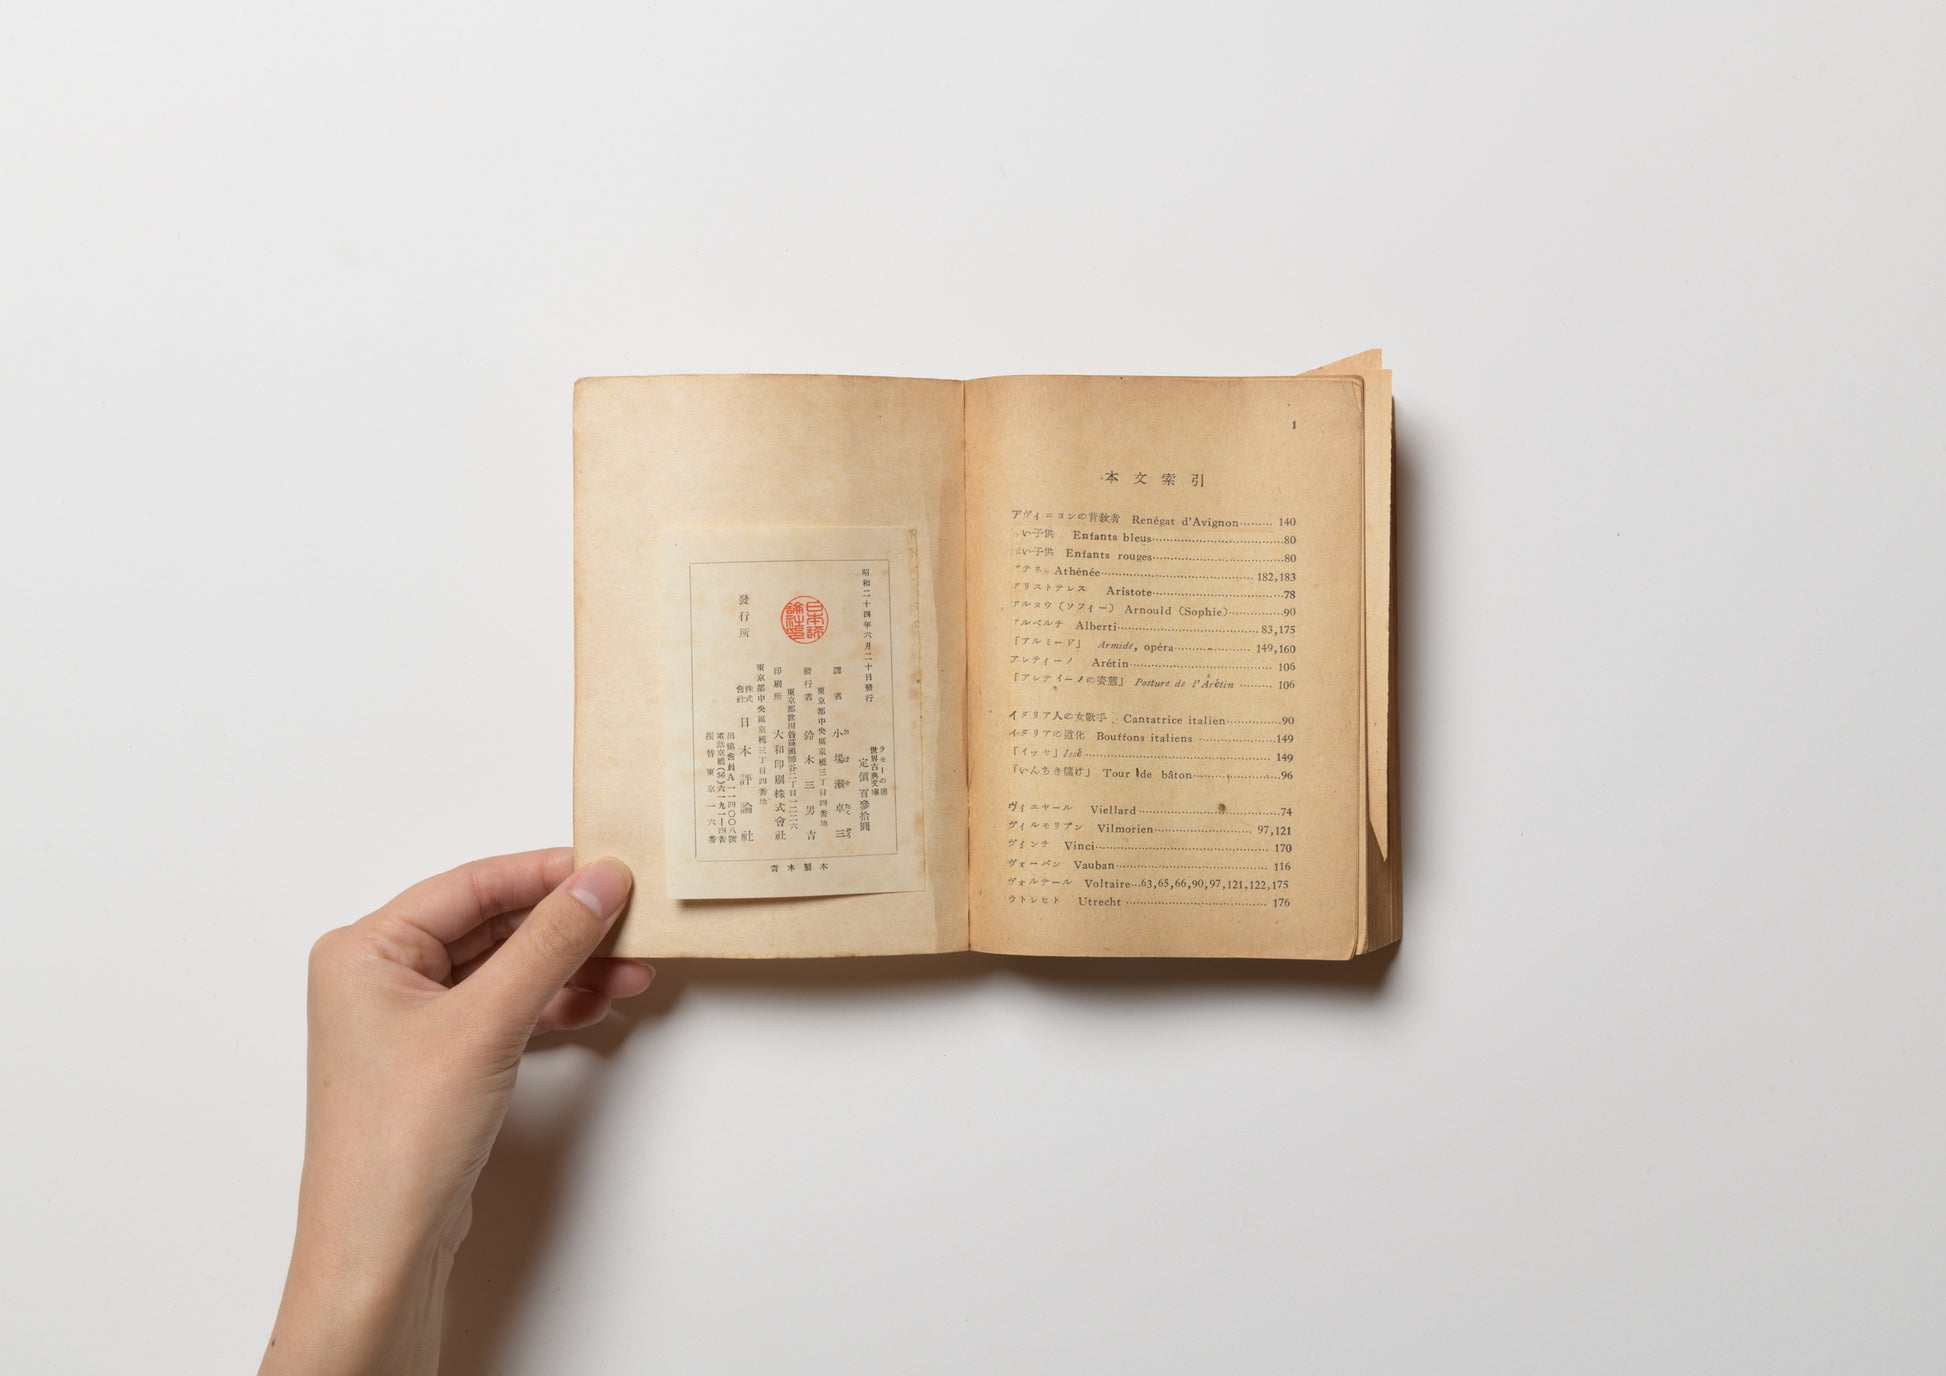 昭和二十四年六月二十日發行
ラモーの甥
世界古典文庫
定價百參拾圓
譯者 小場瀬卓三
東京都中央區京橋三丁目四番地
發行者 鈴木三男吉
東京都世田谷區祖師谷二丁目一二二六
印刷所 大和印刷株式會社
東京都中央區京橋三丁目四番地
發行所 株式會社 日本評論社
出協會員A一一四〇〇八號
電話京橋(56)六一九一―四番
振替東京一六番
青木製本
日本評論社印
1
本文索引
アヴィニヨンの背敎者 Renégat d'Avignon 140
い子供 Enfants bleus 80
い子供 Enfants rouges 80
アテネ Athénée 182,183
アリストテレス Aristote 78
アルヌウ(ソフィー) Arnould (Sophie) 90
アルベルチ Alberti 83,175
「アルミード」 Armide, opéra 149,160
アレティーノ Arétin 106
「アレティーノの姿態」 Posture de l'Arétin 106
イタリア人の女歌手 Cantatrice italien 90
イタリアの道化 Bouffons italiens 149
「イッセ」Issé 149
「いんちき儲け」 Tour de bâton 96
ヴィエヤール Viellard 74
ヴィルモリアン Vilmorien 97,121
ヴィンチ Vinci 170
ヴォーバン Vauban 116
ヴォルテール Voltaire 63,65,66,90,97,121,122,175
ウトレヒト Utrecht 176